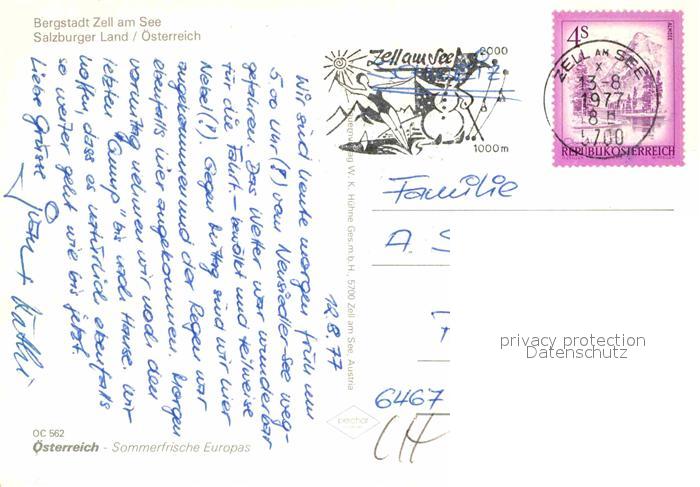 Bergstadt Zell am See
Salzburger Land / Österreich
12.8.77
Wir sind heute morgen früh um
5.00 Uhr (!) vom Neusiedler-See weg-
gefahren. Das Wetter war wunderbar
für die Fahrt. - bewölkt und teilweise
Nebel (!). Gegen Mittag sind wir hier
angekommen und der Regen war
ebenfalls hier angekommen. Morgen
vormittag nehmen wir noch den
letzten "Sprung" bis nach Hause. Wir
hoffen, dass es natürlich ebenfalls
so weiter geht wie bis jetzt.
Liebe Grüsse
OC 562
Österreich - Sommerfrische Europas
W. K. Hühne Ges.m.b.H., 5700 Zell am See, Austria
Zell am See
2000
1000 m
ZELL AM SEE
13-8
1977
8 H
5700
4S
ALMSEE
REPUBLIK ÖSTERREICH
Familie
A. S
6467
CH
privacy protection
Datenschutz